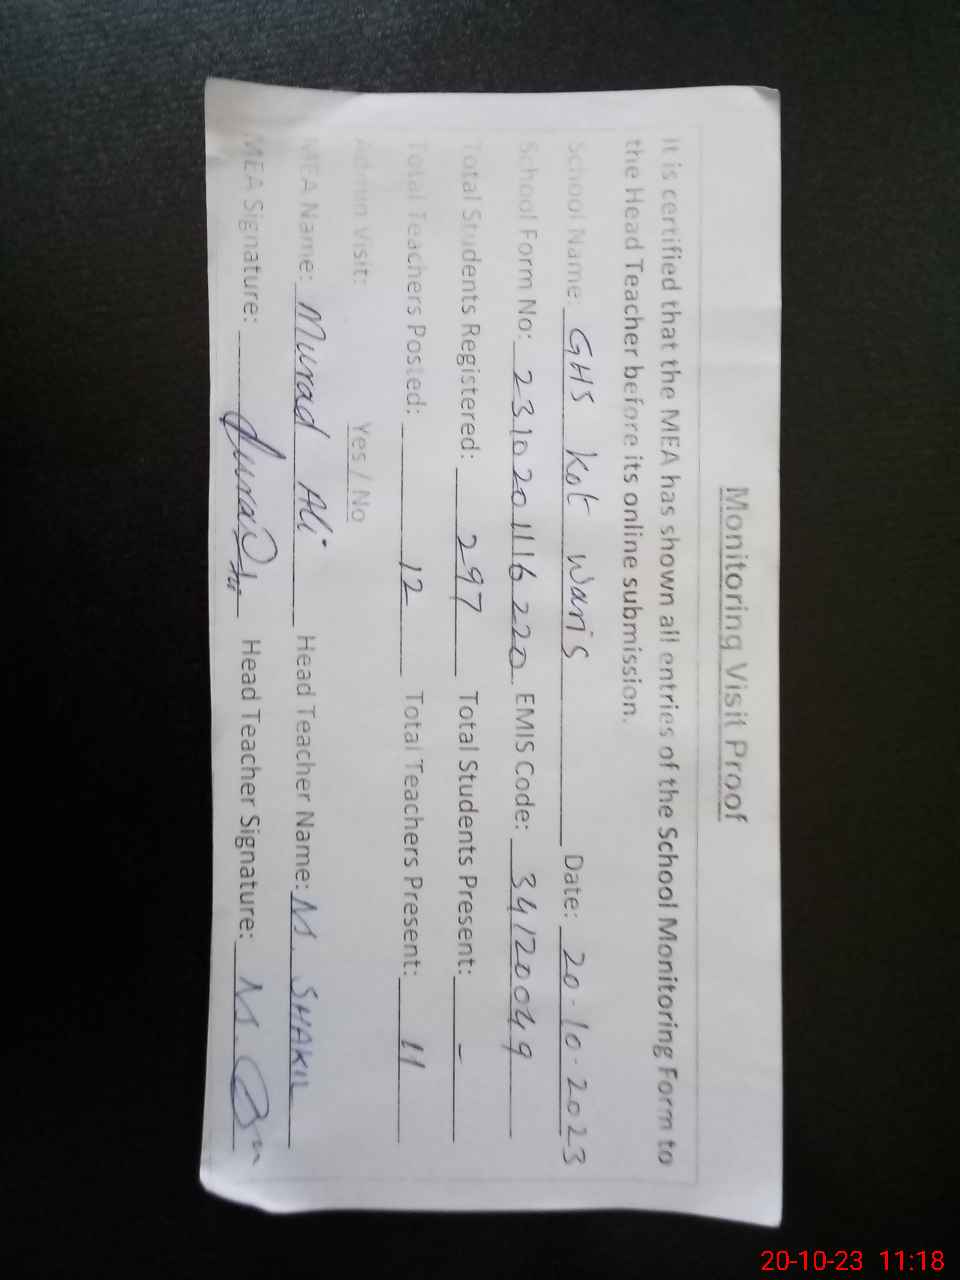 Monitoring Visit Proof
It is certified that the MEA has shown all entries of the School Monitoring Form to
the Head Teacher before its online submission.
School Name: GHS Kot Waris Date: 20-10-2023
School Form No: 2310201116220 EMIS Code: 34120049
Total Students Registered: 297 Total Students Present: -
Total Teachers Posted: 12 Total Teachers Present: 11
Admin Visit: Yes / No
MEA Name: Murad Ali Head Teacher Name: M. SHAKIL
MEA Signature: Head Teacher Signature: M.
20-10-23 11:18